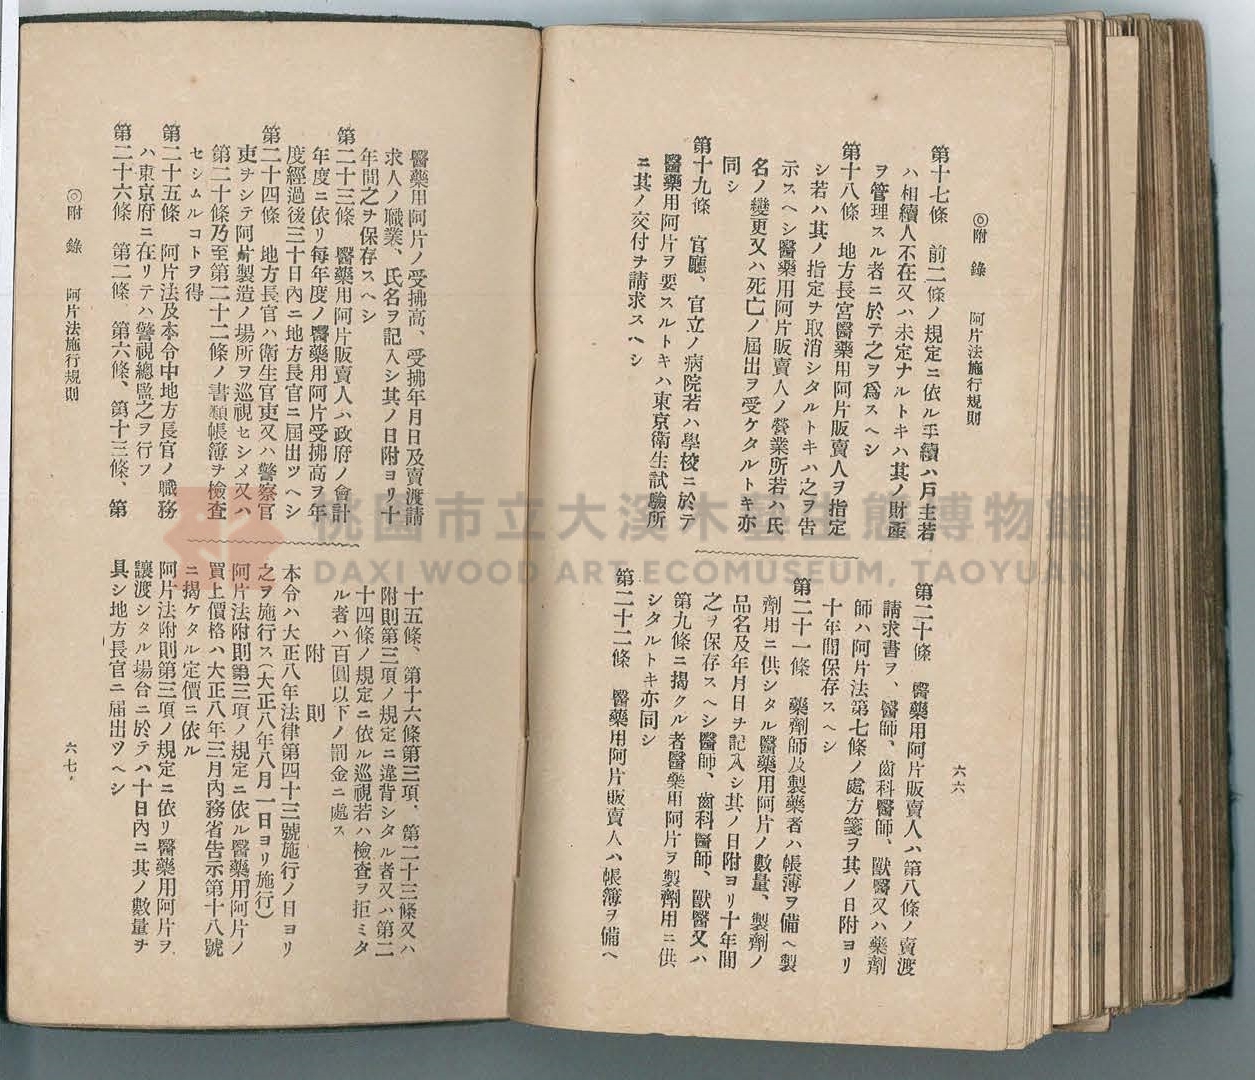 ◎附錄　阿片法施行規則
第十七條　前二條ノ規定ニ依ル手續ハ戶主若
ハ相續人不在又ハ未定ナルトキハ其ノ財產
ヲ管理スル者ニ於テ之ヲ爲スヘシ
第十八條　地方長官醫藥用阿片販賣人ヲ指定
シ若ハ其ノ指定ヲ取消シタルトキハ之ヲ吿
示スヘシ醫藥用阿片販賣人ノ營業所若ハ氏
名ノ變更又ハ死亡ノ屆出ヲ受ケタルトキ亦
同シ
第十九條　官廳、官立ノ病院若ハ學校ニ於テ
醫藥用阿片ヲ要スルトキハ東京衛生試驗所
ニ其ノ交付ヲ請求スヘシ
六六
第二十條　醫藥用阿片販賣人ハ第八條ノ賣渡
請求書ヲ、醫師、齒科醫師、獸醫又ハ藥劑
師ハ阿片法第七條ノ處方箋ヲ其ノ日附ヨリ
十年間保存スヘシ
第二十一條　藥劑師及製藥者ハ帳薄ヲ備ヘ製
劑用ニ供シタル醫藥用阿片ノ數量、製劑ノ
品名及年月日ヲ記入シ其ノ日附ヨリ十年間
之ヲ保存スヘシ醫師、齒科醫師、獸醫又ハ
第九條ニ揭クル者醫藥用阿片ヲ製劑用ニ供
シタルトキ亦同シ
第二十二條　醫藥用阿片販賣人ハ帳簿ヲ備ヘ
醫藥用阿片ノ受拂高、受拂年月日及賣渡請
求人ノ職業、氏名ヲ記入シ其ノ日附ヨリ十
年間之ヲ保存スヘシ
第二十三條　醫藥用阿片販賣人ハ政府ノ會計
年度ニ依リ每年度ノ醫藥用阿片受拂高ヲ年
度經過後三十日內ニ地方長官ニ屆出ツヘシ
第二十四條　地方長官ハ衛生官吏又ハ警察官
吏ヲシテ阿片製造ノ場所ヲ巡視セシメ又ハ
第二十條乃至第二十二條ノ書類帳簿ヲ檢査
セシムルコトヲ得
第二十五條　阿片法及本令中地方長官ノ職務
ハ東京府ニ在リテハ警視總監之ヲ行フ
第二十六條　第二條、第六條、第十三條、第
◎附錄　阿片法施行規則
十五條、第十六條第三項、第二十三條又ハ
附則第三項ノ規定ニ違背シタル者又ハ第二
十四條ノ規定ニ依ル巡視若ハ檢査ヲ拒ミタ
ル者ハ百圓以下ノ罰金ニ處ス
附則
本令ハ大正八年法律第四十三號施行ノ日ヨリ
之ヲ施行ス(大正八年八月一日ヨリ施行)
阿片法附則第三項ノ規定ニ依ル醫藥用阿片ノ
買上價格ハ大正八年三月內務省吿示第十八號
ニ揭ケタル定價ニ依ル
阿片法附則第三項ノ規定ニ依リ醫藥用阿片ヲ
讓渡シタル場合ニ於テハ十日內ニ其ノ數量ヲ
具シ地方長官ニ屆出ツヘシ
六七
桃園市立大溪木藝生態博物館
DAXI WOOD ART ECOMUSEUM, TAOYUAN